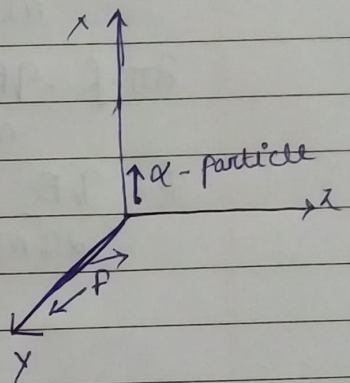 X
α-particle
Z
F
Y